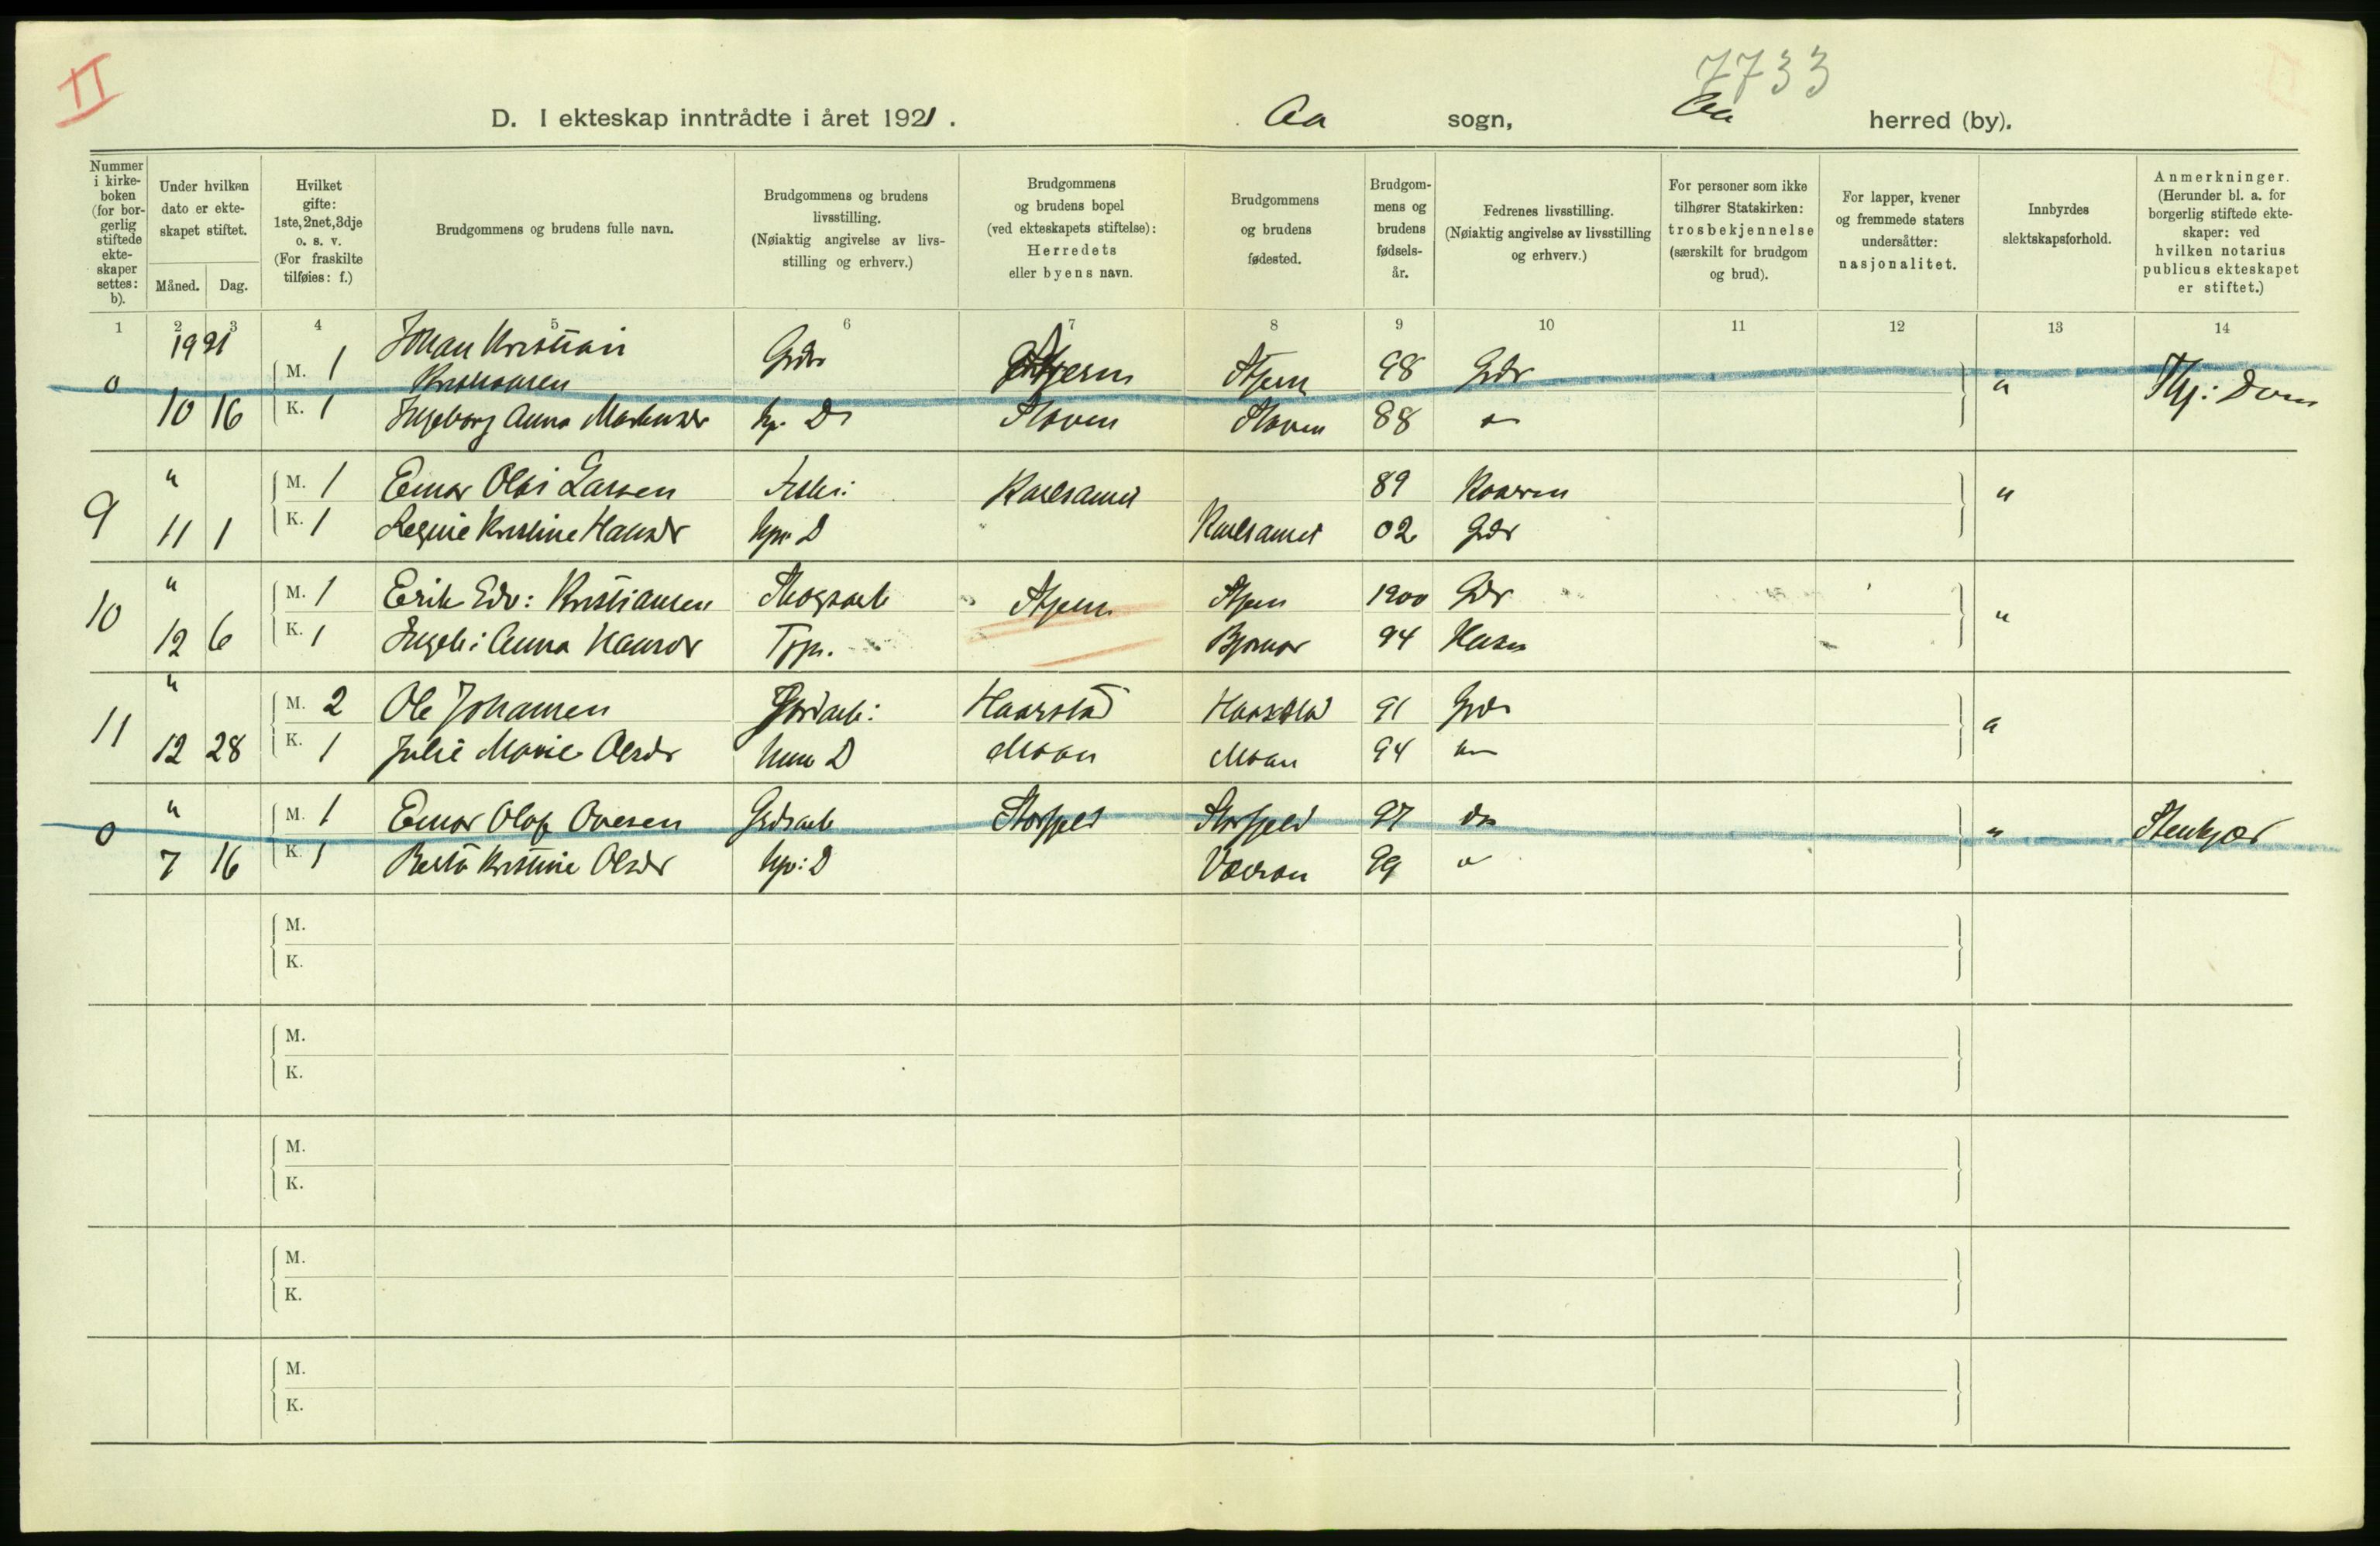 II
7733
D. I ekteskap inntrådte i året 1921.
Aa sogn, Aa herred (by).
Nummer i kirke-boken (for bor-gerlig stiftede ekte-skaper settes: b).
Under hvilken dato er ekte-skapet stiftet.
Måned. Dag.
Hvilket gifte: 1ste, 2net, 3dje o. s. v. (For fraskilte tilføies: f.)
Brudgommens og brudens fulle navn.
Brudgommens og brudens livsstilling. (Nøiaktig angivelse av livs-stilling og erhverv.)
Brudgommens og brudens bopel (ved ekteskapets stiftelse): Herredets eller byens navn.
Brudgommens og brudens fødested.
Brudgom-mens og brudens fødsels-år.
Fedrenes livsstilling. (Nøiaktig angivelse av livsstilling og erhverv.)
For personer som ikke tilhører Statskirken: trosbekjennelse (særskilt for brudgom og brud).
For lapper, kvener og fremmede staters undersåtter: nasjonalitet.
Innbyrdes slektskapsforhold.
Anmerkninger. (Herunder bl. a. for borgerlig stiftede ekte-skaper: ved hvilken notarius publicus ekteskapet er stiftet.)
1 2 3 4 5 6 7 8 9 10 11 12 13 14
1921 Johan Kristian
0 M. 1 Kristiansen Stjern 98 Gdr "
10 16 K. 1 Ingeborg Anna Hp. D Sloven Sloven 88 "
" M. 1 Einar Olai Larsen 89 "
9 11 1 K. 1 Regine Kristine Hansdr D 02 Gdr
" M. 1 Erik Edv: Kristiansen Skogsarb Stjern Stjern 1900 Gdr "
10 12 6 K. 1 Ingeb: Anna Hansdr Tjp. 94 Husm
" M. 2 Ole Johansen Gårdarb: Haarstad Haarstad 91 Gdr "
11 12 28 K. 1 Julie Marie Olsdr D Moan Moan 94
" M. 1 Einar Olaf Ovesen Gdrarb Storfjeld Storfjeld 97 do "
0 7 16 K. 1 Berta Kristine Olsdr D 99 " Stenkjær
M.
K.
M.
K.
M.
K.
M.
K.
M.
K.